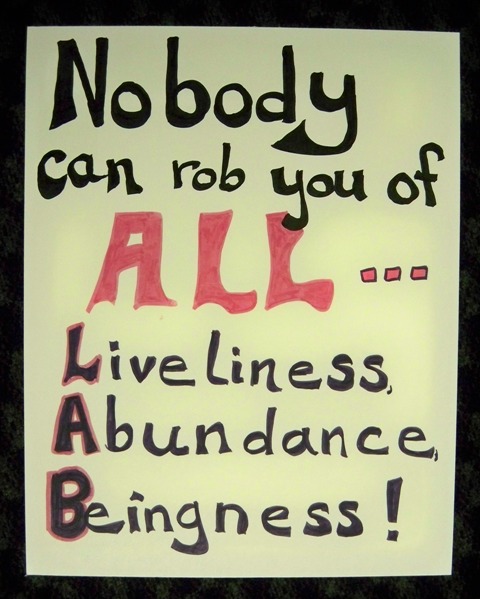 Nobody
can rob you of
ALL ...
Liveliness,
Abundance,
Beingness!